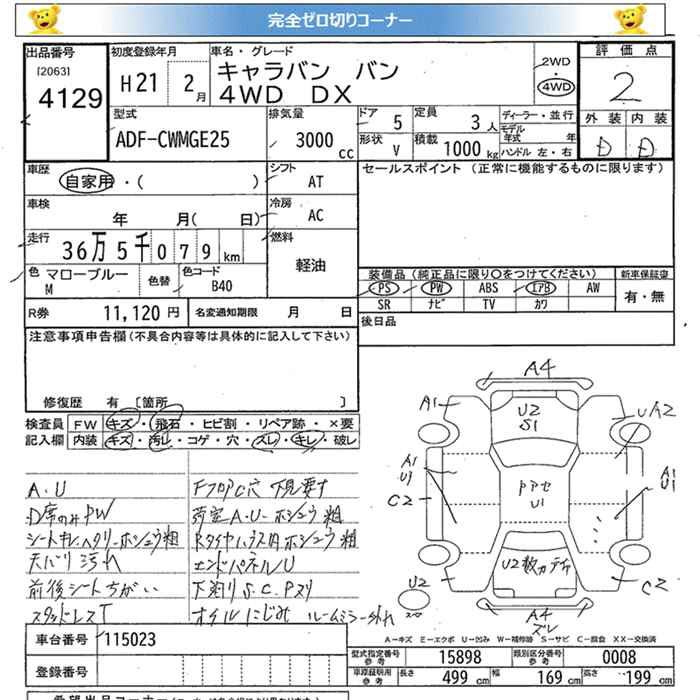 完全ゼロ切りコーナー
出品番号
[2063]
4129
初度登録年月
H21 2月
車名・グレード
キャラバン バン
4WD DX
2WD
4WD
評価点
2
外装 内装
D D
型式
ADF-CWMGE25
排気量
3000 cc
ドア 5
形状 V
定員 3人
積載 1000 kg
ディーラー・並行
モデル年式 年
ハンドル 左・右
車歴
自家用・( )
シフト
AT
セールスポイント (正常に機能するものに限ります)
車検
年 月( 日)
冷房
AC
走行
36万5千079 km
燃料
軽油
色 マローブルーM
色替
色コード
B40
装備品 (純正品に限り○をつけてください)
PS PW ABS エアB AW
SR ナビ TV カワ
新車保証書
有・無
R券 11,120円
名変通知期限 月 日
後日品
注意事項申告欄(不具合内容等は具体的に記入して下さい)
修復歴 有 [箇所 ]
検査員記入欄
FW キズ・飛石・ヒビ割・リペア跡・×要
内装 キズ・汚レ・コゲ・穴・スレ・キレ・破レ
A.U
D席のみPW
シートキレ、ヘタリーホシュウ粗
天バリ汚れ
前後シートちがい
スタッドレスT
Fフロア穴 下見要す
荷室A.U-ホシュウ粗
Rタイヤハウス内ホシュウ粗
エンドパネルU
下廻りS.C.Pスリ
オイルにじみ ルームミラー外れ
A4
A1
U2
S1
A2
A1
U1
C2
U1
A1
U1
U2
U2
C2
A4
ズレ
A-キズ E-エクボ U-凹み W-補修跡 S-サビ C-腐食 XX-交換済
車台番号 115023
登録番号
型式指定番号 参考 15898
類別区分番号 参考 0008
車庫証明用 参考
長さ 499 cm
幅 169 cm
高さ 199 cm